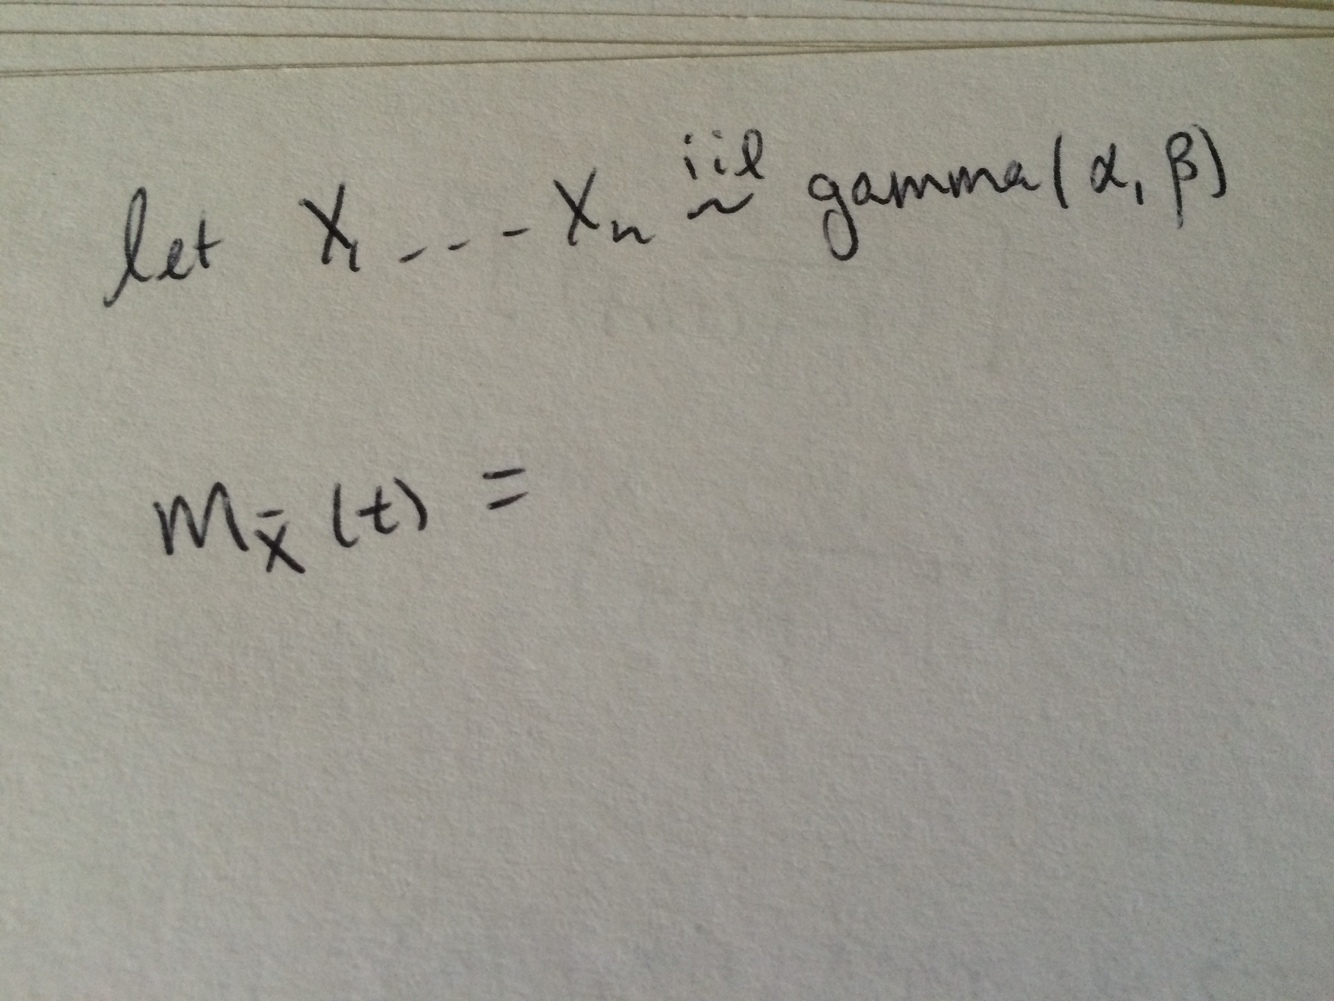 let X₁ - - - Xₙ iid ~ gamma(α, β)
M_X̄ (t) =